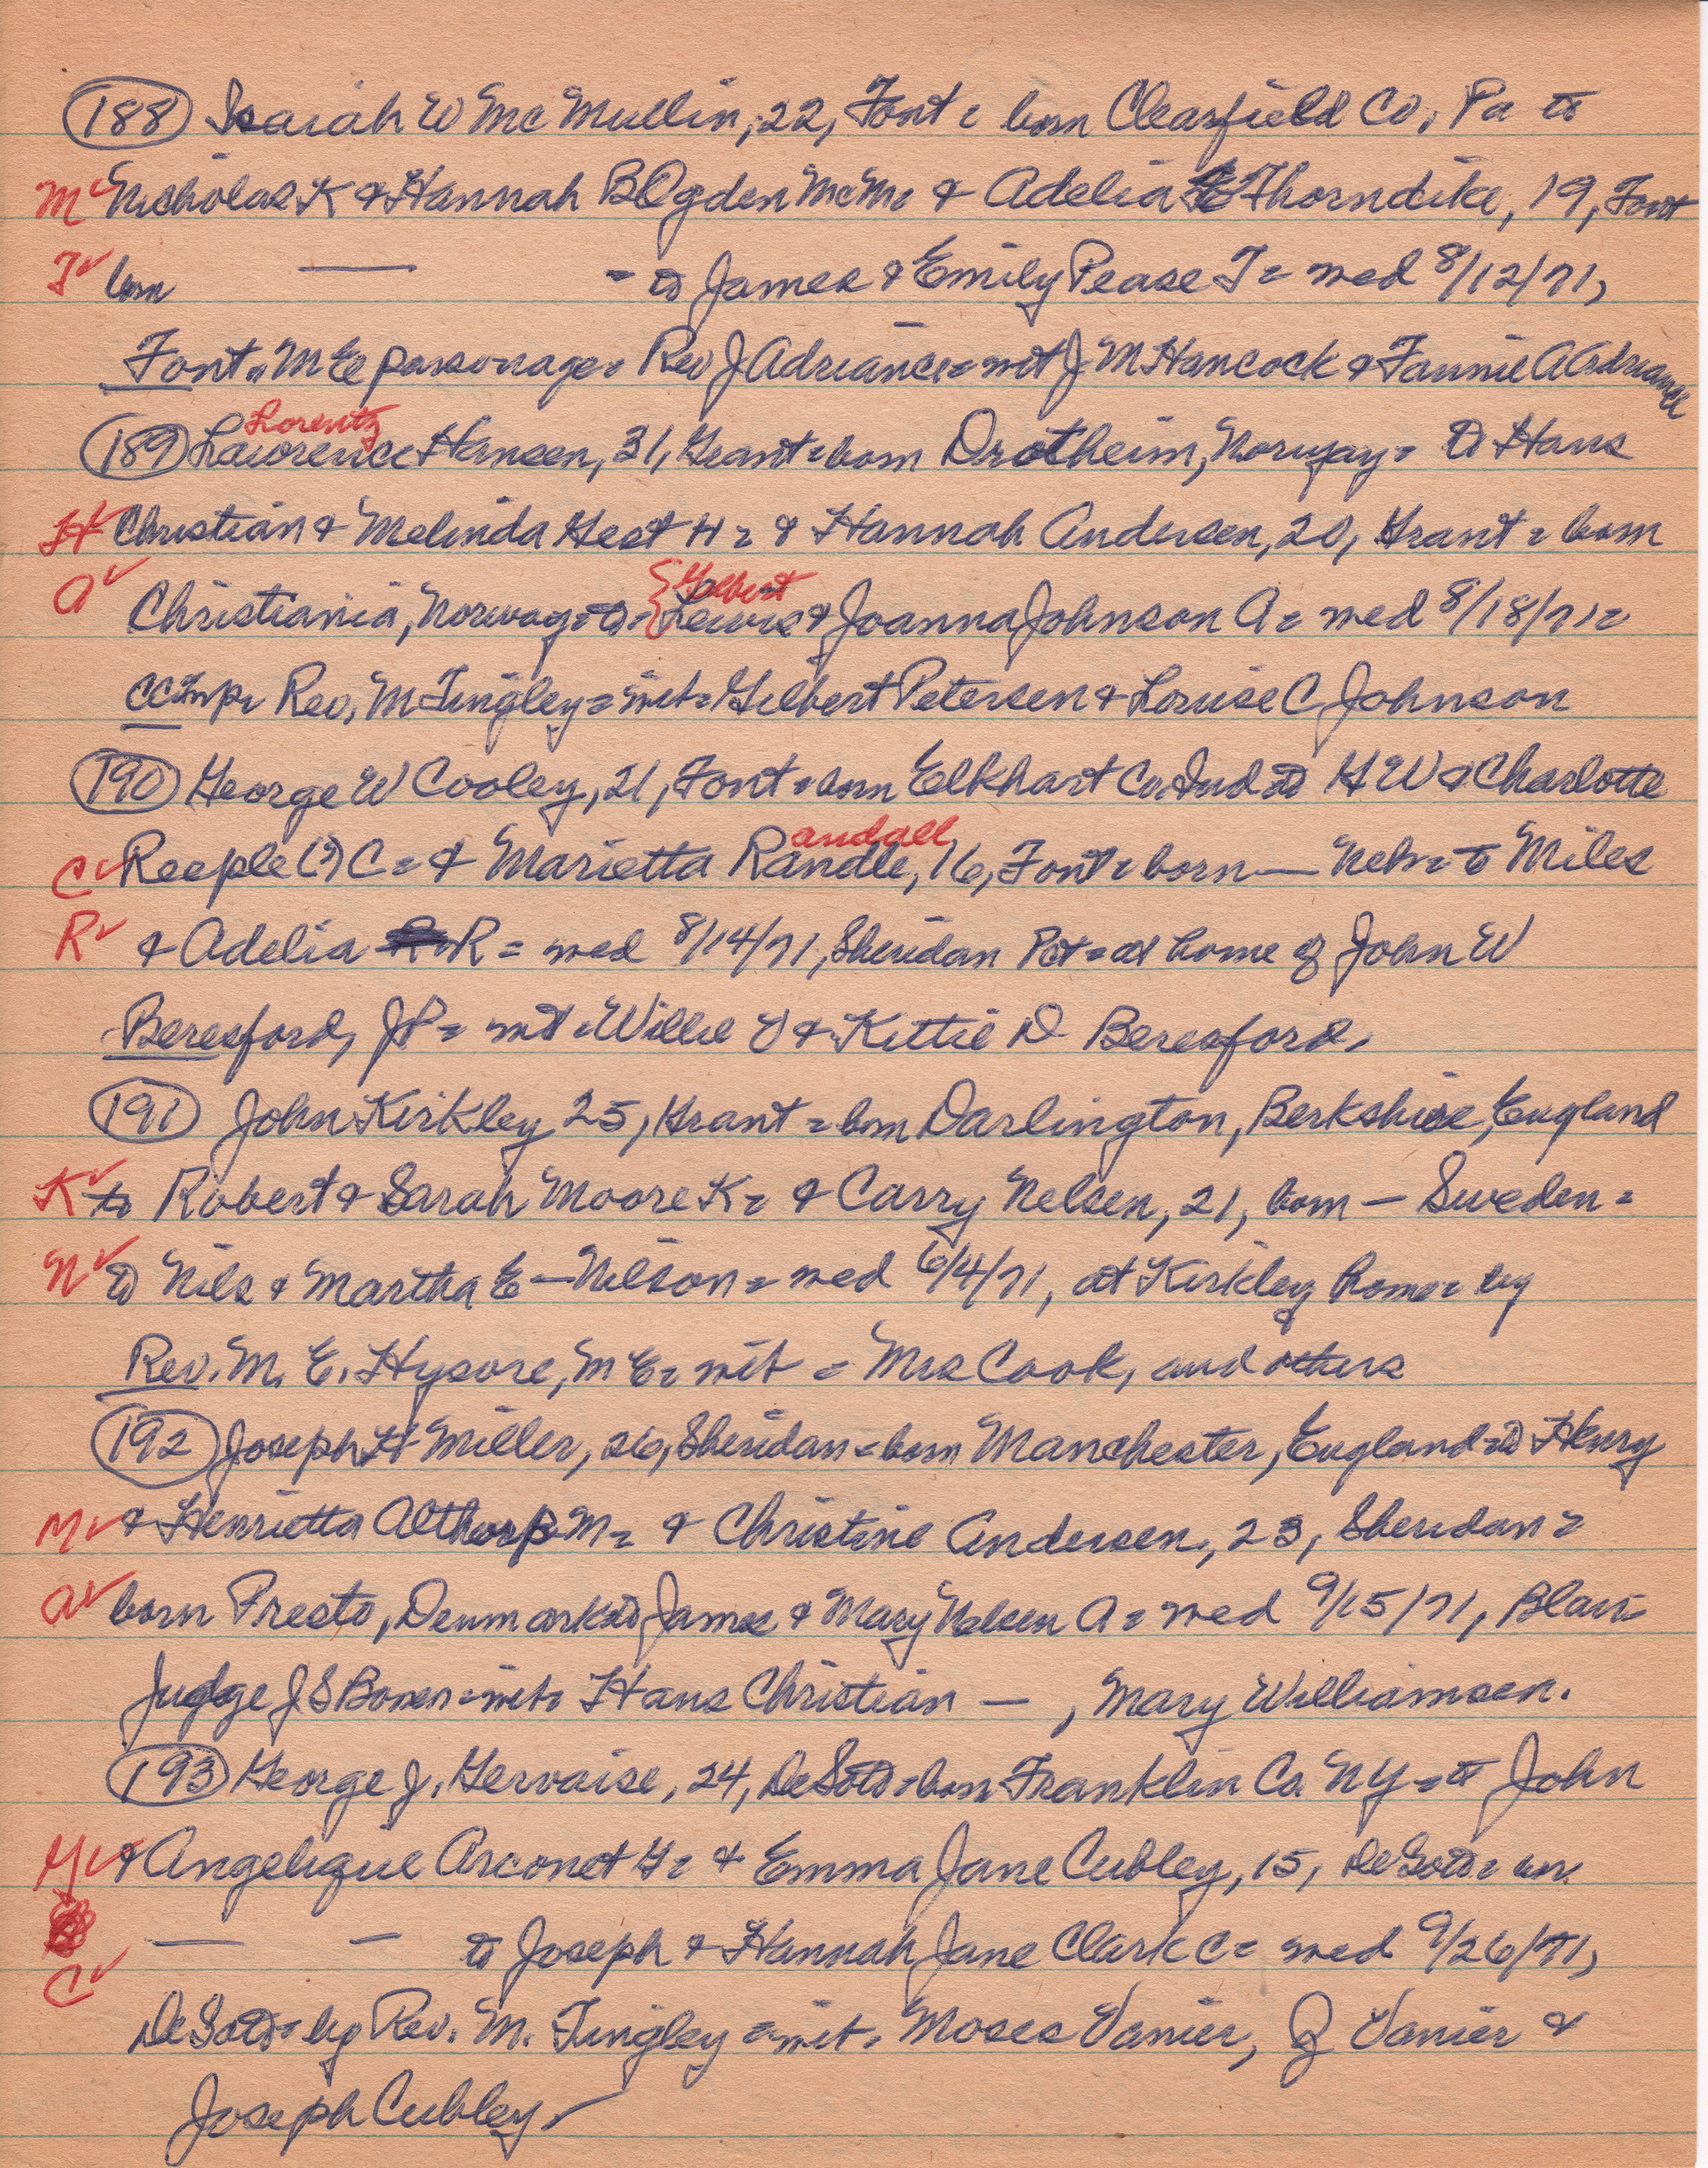 188 Isaiah W McMullin, 22, Font = born Clearfield Co, Pa to
M✓ Nicholas K & Hannah B Ogden McM= & Adelia Thorndike, 19, Font
T✓ born — = to James & Emily Pease T= wed 8/12/71,
Font = ME parsonage = Rev J Adriance = wit J M Hancock & Fannie A Adriance
Lorentz
189 Lawrence Hansen, 31, Grant = born Drotheim, Norway = to Hans
H✓ Christian & Melinda Gest H = & Hannah Andersen, 20, Grant = born
Gilbert
A✓ Christiania, Norway = to = {Lewis & Joanna Johnson A = wed 8/18/71 =
Rev. M Tingley = wit = Gilbert Petersen & Louise C Johnson
190 George W Cooley, 21, Font = born Elkhart Co, Ind to G W & Charlotte
andall
C✓ Reeple (?) C = & Marietta Randle, 16, Font = born — Neb = to Miles
R✓ & Adelia R = wed 8/14/71, Sheridan Pct = at home of John W
Beresford, JP = wit = Willie O & Kittie D Beresford.
191 John Kirkley 25, Grant = born Darlington, Berkshire, England
K✓ to Robert & Sarah Moore K = & Carry Nelsen, 21, born — Sweden =
N✓ to Nils & Martha E — Nilson = wed 6/4/71, at Kirkley home = by
Rev. M. E. Hysore, ME = wit = Mrs Cook, and others
192 Joseph H Miller, 26, Sheridan = born Manchester, England = to Henry
M✓ & Henrietta Althorp M = & Christine Andersen, 23, Sheridan =
A✓ born Presto, Denmark = to James & Mary Nelsen A = wed 9/15/71, Blair
Judge J S Bowen = wit = Hans Christian — , Mary Williamsen.
193 George J. Gervaise, 24, DeSoto = born Franklin Co NY = to John
G✓ & Angelique Arconet G = & Emma Jane Cubley, 15, DeSoto = born
— — to Joseph & Hannah Jane Clark C = wed 9/26/71,
C✓
DeSoto = by Rev. M. Tingley = wit = Moses Vanier, Q Vanier &
Joseph Cubley